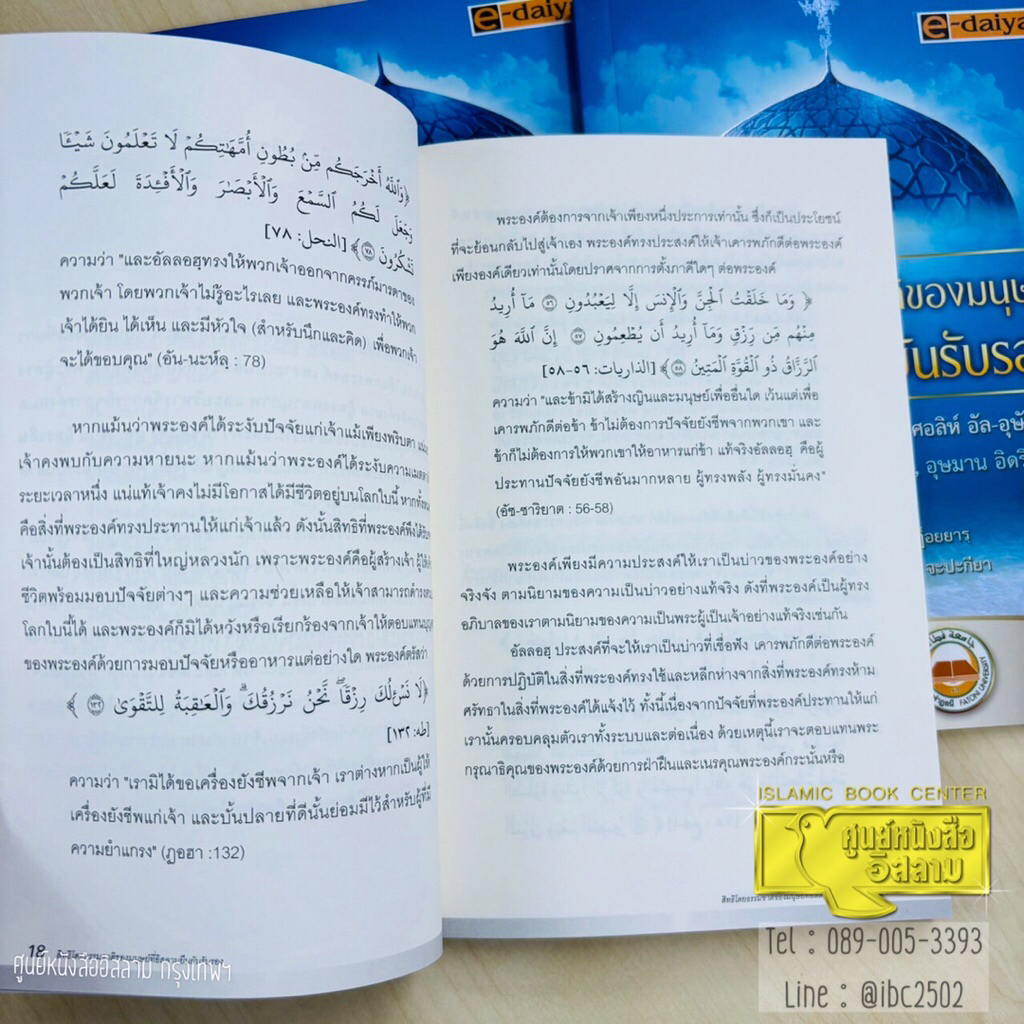 ﴿وَٱللَّهُ أَخْرَجَكُم مِّنۢ بُطُونِ أُمَّهَٰتِكُمْ لَا تَعْلَمُونَ شَيْـًٔا
وَجَعَلَ لَكُمُ ٱلسَّمْعَ وَٱلْأَبْصَٰرَ وَٱلْأَفْـِٔدَةَ لَعَلَّكُمْ
تَشْكُرُونَ ٧٨﴾ [النحل: ٧٨]
ความว่า "และอัลลอฮฺทรงให้พวกเจ้าออกจากครรภ์มารดาของ
พวกเจ้า โดยพวกเจ้าไม่รู้อะไรเลย และพระองค์ทรงทำให้พวก
เจ้าได้ยิน ได้เห็น และมีหัวใจ (สำหรับนึกและคิด) เพื่อพวกเจ้า
จะได้ขอบคุณ" (อัน-นะห์ลฺ : 78)
หากแม้นว่าพระองค์ได้ระงับปัจจัยแก่เจ้าแม้เพียงพริบตา
เจ้าคงพบกับความหายนะ หากแม้นว่าพระองค์ได้ระงับความเมตตา
ระยะเวลาหนึ่ง แน่แท้เจ้าคงไม่มีโอกาสได้มีชีวิตอยู่บนโลกใบนี้
คือสิ่งที่พระองค์ทรงประทานให้แก่เจ้าแล้ว ดังนั้นสิทธิที่พระองค์พึงได้
เจ้านั้นต้องเป็นสิทธิที่ใหญ่หลวงนัก เพราะพระองค์คือผู้สร้างเจ้า
ชีวิตพร้อมมอบปัจจัยต่างๆ และความช่วยเหลือให้เจ้าสามารถดำรง
โลกใบนี้ได้ และพระองค์ก็มิได้หวังหรือเรียกร้องจากเจ้าให้ตอบแทน
ของพระองค์ด้วยการมอบปัจจัยหรืออาหารแต่อย่างใด พระองค์ตรัสว่า
﴿لَا نَسْـَٔلُكَ رِزْقًا ۖ نَّحْنُ نَرْزُقُكَ ۗ وَٱلْعَٰقِبَةُ لِلتَّقْوَىٰ ١٣٢﴾
[طه: ١٣٢]
ความว่า "เรามิได้ขอเครื่องยังชีพจากเจ้า เราต่างหากเป็นผู้ให้
เครื่องยังชีพแก่เจ้า และบั้นปลายที่ดีนั้นย่อมมีไว้สำหรับผู้ที่มี
ความยำแกรง" (ฏอฮา :132)
18
พระองค์ต้องการจากเจ้าเพียงหนึ่งประการเท่านั้น ซึ่งก็เป็นประโยชน์
ที่จะย้อนกลับไปสู่เจ้าเอง พระองค์ทรงประสงค์ให้เจ้าเคารพภักดีต่อพระองค์
เพียงองค์เดียวเท่านั้นโดยปราศจากการตั้งภาคีใดๆ ต่อพระองค์
﴿ وَمَا خَلَقْتُ ٱلْجِنَّ وَٱلْإِنسَ إِلَّا لِيَعْبُدُونِ ٥٦ مَآ أُرِيدُ
مِنْهُم مِّن رِّزْقٍ وَمَآ أُرِيدُ أَن يُطْعِمُونِ ٥٧ إِنَّ ٱللَّهَ هُوَ
ٱلرَّزَّاقُ ذُو ٱلْقُوَّةِ ٱلْمَتِينُ ٥٨﴾ [الذاريات: ٥٦-٥٨]
ความว่า "และข้ามิได้สร้างญินและมนุษย์เพื่ออื่นใด เว้นแต่เพื่อ
เคารพภักดีต่อข้า ข้าไม่ต้องการปัจจัยยังชีพจากพวกเขา และ
ข้าก็ไม่ต้องการให้พวกเขาให้อาหารแก่ข้า แท้จริงอัลลอฮฺ คือผู้
ประทานปัจจัยยังชีพอันมากหลาย ผู้ทรงพลัง ผู้ทรงมั่นคง"
(อัซ-ซาริยาต : 56-58)
พระองค์เพียงมีความประสงค์ให้เราเป็นบ่าวของพระองค์อย่าง
จริงจัง ตามนิยามของความเป็นบ่าวอย่างแท้จริง ดังที่พระองค์เป็นผู้ทรง
อภิบาลของเราตามนิยามของความเป็นพระผู้เป็นเจ้าอย่างแท้จริงเช่นกัน
อัลลอฮฺ ประสงค์ที่จะให้เราเป็นบ่าวที่เชื่อฟัง เคารพภักดีต่อพระองค์
ด้วยการปฏิบัติในสิ่งที่พระองค์ทรงใช้และหลีกห่างจากสิ่งที่พระองค์ทรงห้าม
ศรัทธาในสิ่งที่พระองค์ได้แจ้งไว้ ทั้งนี้เนื่องจากปัจจัยที่พระองค์ประทานให้แก่
เรานั้นครอบคลุมตัวเราทั้งระบบและต่อเนื่อง ด้วยเหตุนี้เราจะตอบแทนพระ
กรุณาธิคุณของพระองค์ด้วยการฝ่าฝืนและเนรคุณพระองค์กระนั้นหรือ
e-daiya
e-daiya
ของมนุษ
ันรับรอ
ศอลิห์ อัล-อุษั
อุษมาน อิดริ
อยยารฺ
จะปะกียา
جامعة فطاني
FATONI UNIVERSITY
ISLAMIC BOOK CENTER
ศูนย์หนังสือ
อิสลาม
Tel : 089-005-3393
Line : @ibc2502
ศูนย์หนังสืออิสลาม กรุงเทพฯ